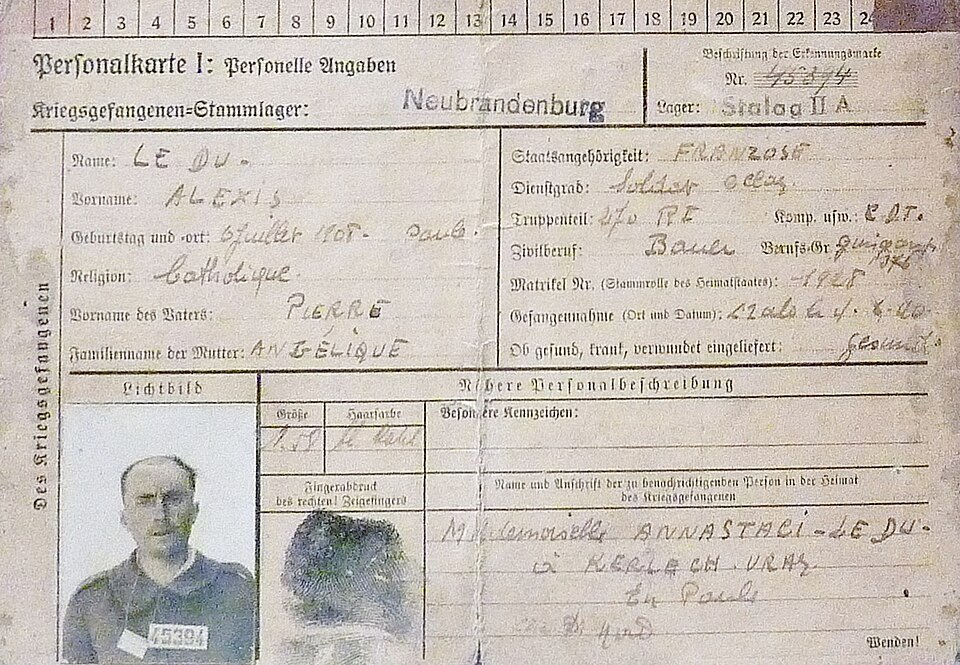 1 2 3 4 5 6 7 8 9 10 11 12 13 14 15 16 17 18 19 20 21 22 23 24
Personalkarte I: Personelle Angaben
Beschriftung der Erkennungsmarke
Nr.
Kriegsgefangenen=Stammlager: Neubrandenburg
Lager: Stalag II A
Des Kriegsgefangenen
Name: LE DU -
Vorname: ALEXIS
Geburtstag und =ort: 6 juillet 1908 - Paule.
Religion: Catholique
Vorname des Vaters: PIERRE
Familienname der Mutter: ANGÉLIQUE
Staatsangehörigkeit: FRANZOSE
Dienstgrad: Soldat
Truppenteil: RE Komp. usw.: C.DT.
Zivilberuf: Bauer Berufs-Gr.
Matrikel Nr. (Stammrolle des Heimatstaates): 1928
Gefangennahme (Ort und Datum):
Ob gesund, krank, verwundet eingeliefert: gesund.
Lichtbild
Nähere Personalbeschreibung
Größe
Haarfarbe
Besondere Kennzeichen:
1.58
Fingerabdruck
des rechten! Zeigefingers
Name und Anschrift der zu benachrichtigenden Person in der Heimat
des Kriegsgefangenen
Mademoiselle ANNASTACI - LE DU -
à KERLECH-VRAZ
En Paule
45394
Wenden!